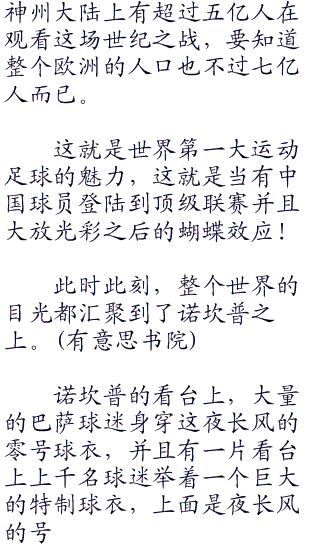 神州大陆上有超过五亿人在
观看这场世纪之战，要知道
整个欧洲的人口也不过七亿
人而已。
这就是世界第一大运动
足球的魅力，这就是当有中
国球员登陆到顶级联赛并且
大放光彩之后的蝴蝶效应！
此时此刻，整个世界的
目光都汇聚到了诺坎普之
上。(有意思书院)
诺坎普的看台上，大量
的巴萨球迷身穿这夜长风的
零号球衣，并且有一片看台
上上千名球迷举着一个巨大
的特制球衣，上面是夜长风
的号